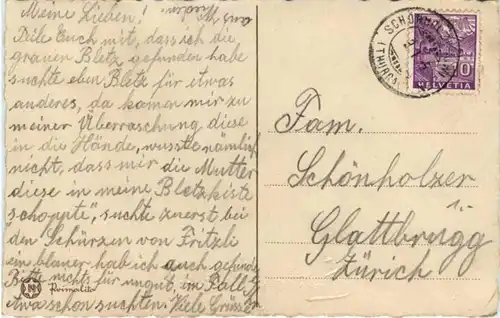 Meine Lieben!
Teile Euch mit, dass ich die
grauen Bletz gefunden habe
suchte eben Bletz für etwas
anderes, da kamen mir zu
meiner Überraschung diese
in die Hände, wusste nämlich
nicht, dass mir die Mutter
diese in meine Bletzkiste
schoppte, suchte zuerst bei
den Schürzen von Fritzli
ein blauer hab ich auch gefunden
Bitte nichts für ungut, im Falle Ihr
etwa schon suchten. Viele Grüsse
aus
Primalito
HELVETIA
10
Fam.
Schönholzer
Glattbrugg
Zürich